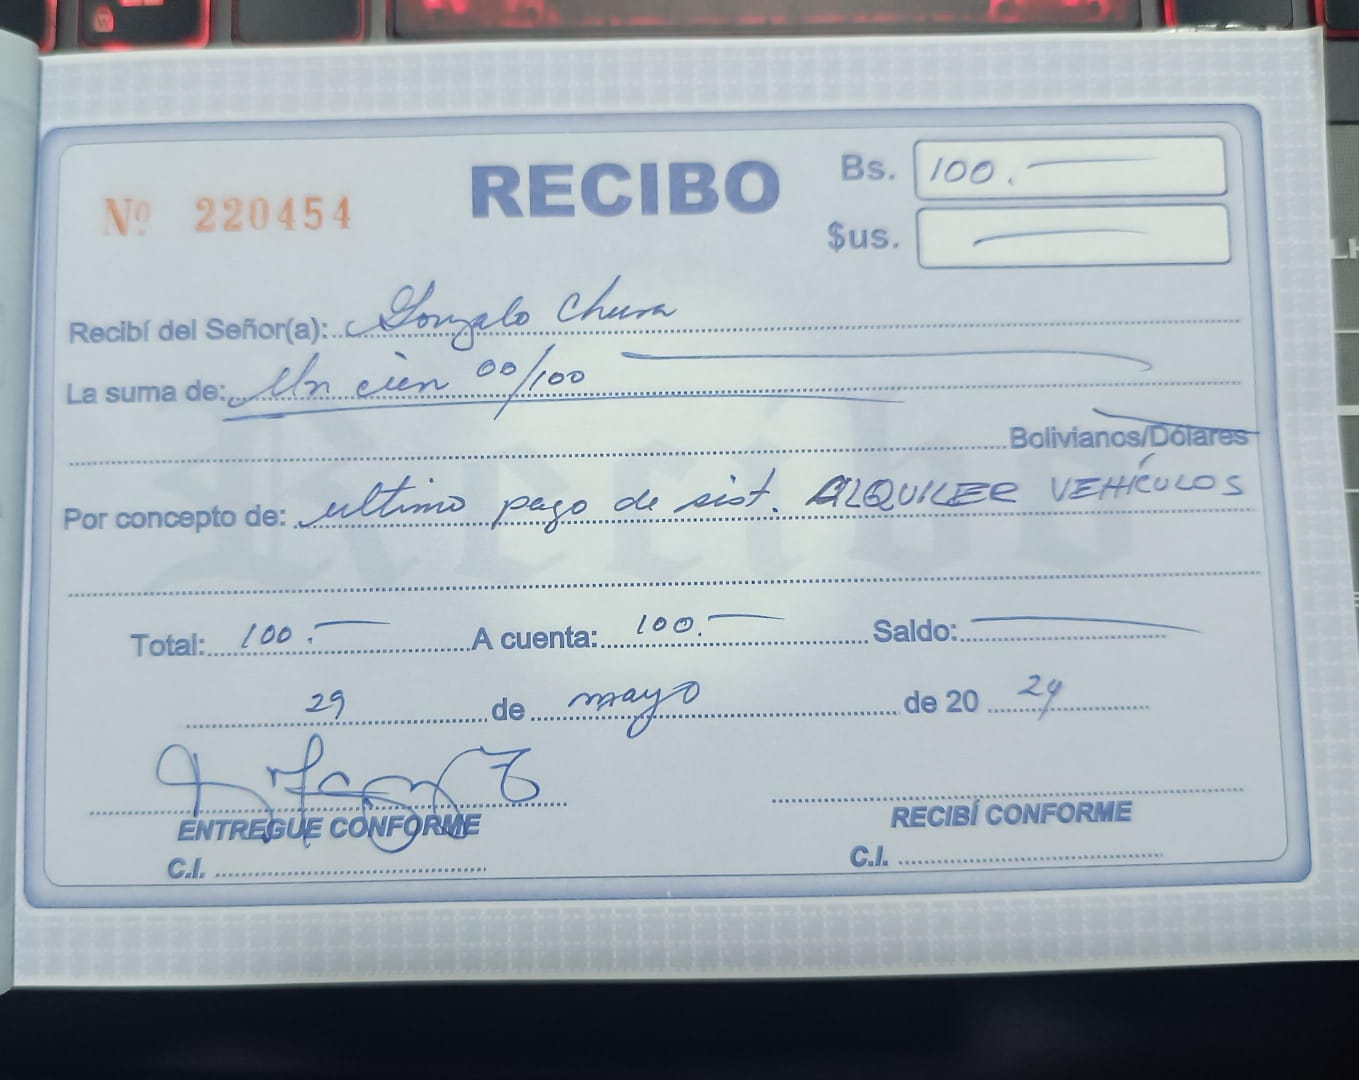 Nº 220454
RECIBO
Bs. 100.
$us.
Recibí del Señor(a): Gonzalo Chura
La suma de: Un cien 00/100
Bolivianos/Dólares
Por concepto de: ultimo pago de sist. ALQUILER VEHÍCULOS
Total: 100. A cuenta: 100. Saldo:
29 de mayo de 20 24
ENTREGUE CONFORME
RECIBÍ CONFORME
C.I.
C.I.
Recibo